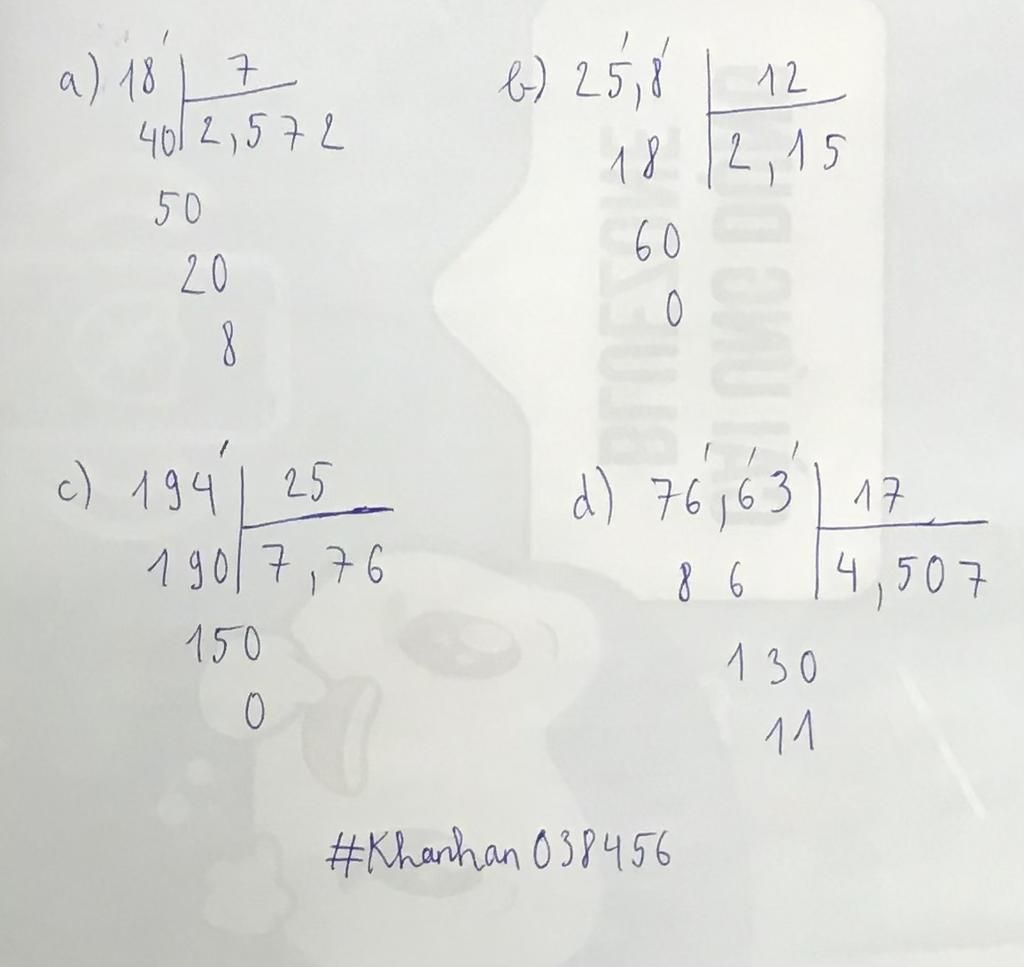 a) 18 7
40 2,572
50
20
8
b) 25,8 12
18 2,15
60
0
c) 194 25
190 7,76
150
0
d) 76,63 17
8 6 4,507
130
11
#Khanhan038456
BLUEZONE